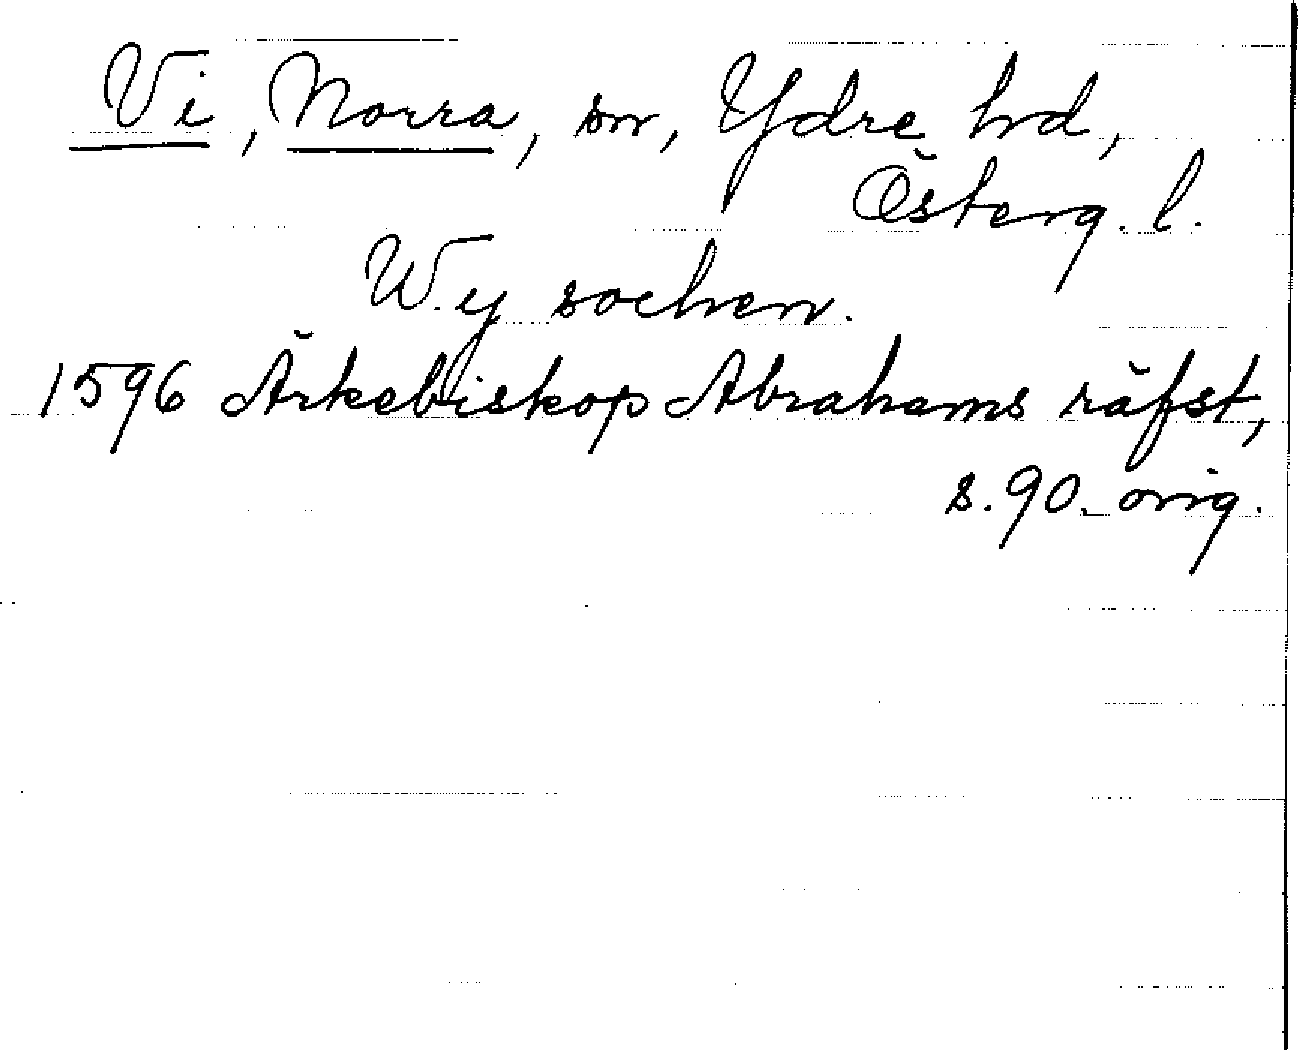 Vi, Norra, sn, Ydre hd,
Österg. l.
Wy sochen.
1596 Ärkebiskop Abrahams räfst,
s. 90. orig.